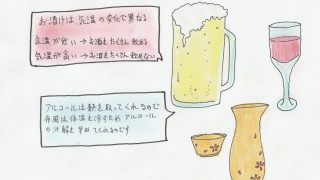 お酒は 気温の変化で異なる
気温が低い→お酒をたくさん飲める
気温が高い→お酒をたくさん飲めない
アルコールは熱を取ってくれるので
は体温を冷すため アルコール
の分解を早めてくれるのです